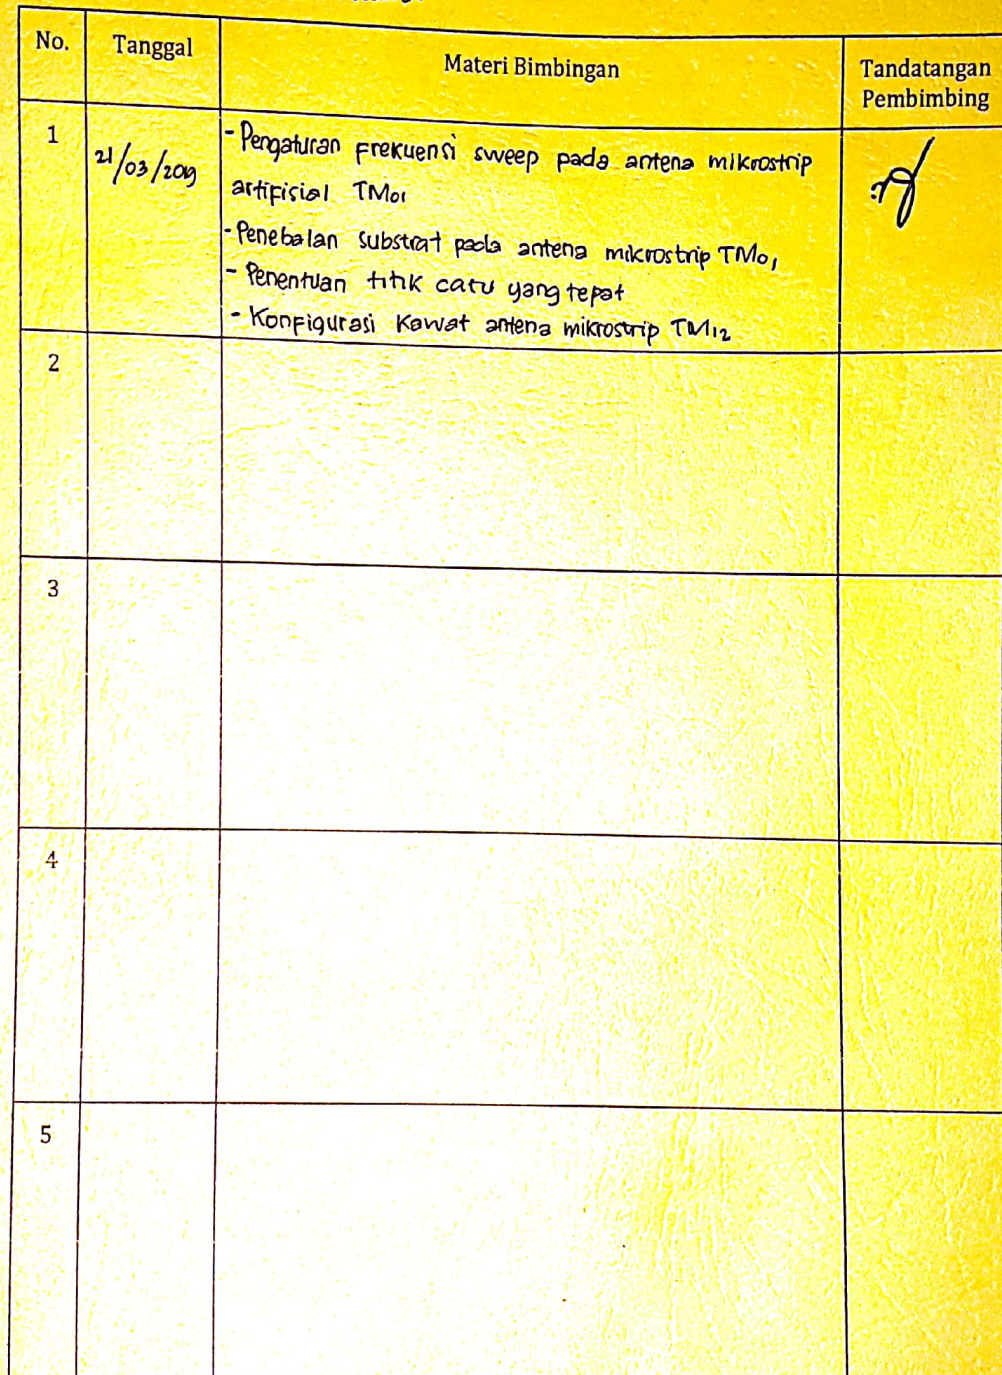 No. Tanggal Materi Bimbingan Tandatangan
Pembimbing
1 21/03/2019 - Pengaturan Frekuensi sweep pada antena mikrostrip
artifisial TM01
- Penebalan substrat pada antena mikrostrip TM01
- Penentuan titik catu yang tepat
- Konfigurasi Kawat antena mikrostrip TM12
2
3
4
5